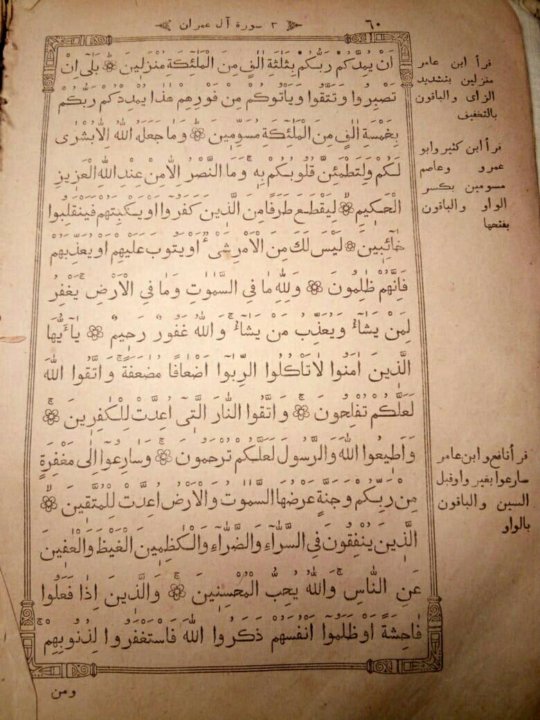 ٦٠
٣ سورة آل عمران
اَنْ يُمِدَّكُمْ رَبُّكُمْ بِثَلٰثَةِ اٰلٰفٍ مِنَ الْمَلٰٓئِكَةِ مُنْزَلِينَ بَلٰٓى اِنْ
تَصْبِرُوا وَتَتَّقُوا وَيَأْتُوكُمْ مِنْ فَوْرِهِمْ هٰذَا يُمْدِدْكُمْ رَبُّكُمْ
بِخَمْسَةِ اٰلٰفٍ مِنَ الْمَلٰٓئِكَةِ مُسَوِّمِينَ وَمَا جَعَلَهُ اللّٰهُ اِلَّا بُشْرٰى
لَكُمْ وَلِتَطْمَئِنَّ قُلُوبُكُمْ بِهِ وَمَا النَّصْرُ اِلَّا مِنْ عِنْدِ اللّٰهِ الْعَزِيزِ
الْحَكِيمِ لِيَقْطَعَ طَرَفًا مِنَ الَّذِينَ كَفَرُوٓا اَوْ يَكْبِتَهُمْ فَيَنْقَلِبُوا
خَآئِبِينَ لَيْسَ لَكَ مِنَ الْاَمْرِ شَىْءٌ اَوْ يَتُوبَ عَلَيْهِمْ اَوْ يُعَذِّبَهُمْ
فَاِنَّهُمْ ظٰلِمُونَ وَلِلّٰهِ مَا فِى السَّمٰوٰتِ وَمَا فِى الْاَرْضِ يَغْفِرُ
لِمَنْ يَشَآءُ وَيُعَذِّبُ مَنْ يَشَآءُ وَاللّٰهُ غَفُورٌ رَحِيمٌ يٰٓاَيُّهَا
الَّذِينَ اٰمَنُوا لَا تَأْكُلُوا الرِّبٰوٓا اَضْعَافًا مُضٰعَفَةً وَاتَّقُوا اللّٰهَ
لَعَلَّكُمْ تُفْلِحُونَ وَاتَّقُوا النَّارَ الَّتِىٓ اُعِدَّتْ لِلْكٰفِرِينَ
وَاَطِيعُوا اللّٰهَ وَالرَّسُولَ لَعَلَّكُمْ تُرْحَمُونَ وَسَارِعُوٓا اِلٰى مَغْفِرَةٍ
مِنْ رَبِّكُمْ وَجَنَّةٍ عَرْضُهَا السَّمٰوٰتُ وَالْاَرْضُ اُعِدَّتْ لِلْمُتَّقِينَ
الَّذِينَ يُنْفِقُونَ فِى السَّرَّآءِ وَالضَّرَّآءِ وَالْكٰظِمِينَ الْغَيْظَ وَالْعَافِينَ
عَنِ النَّاسِ وَاللّٰهُ يُحِبُّ الْمُحْسِنِينَ وَالَّذِينَ اِذَا فَعَلُوا
فَاحِشَةً اَوْ ظَلَمُوٓا اَنْفُسَهُمْ ذَكَرُوا اللّٰهَ فَاسْتَغْفَرُوا لِذُنُوبِهِمْ
ومن
قرأ ابن عامر
منزلين بتشديد
الزاى والباقون
بالتخفيف
قرأ ابن كثير وابو
عمرو وعاصم
مسومين بكسر
الواو والباقون
بفتحها
قرأ نافع وابن عامر
سارعوا بغير واو قبل
السين والباقون
بالواو